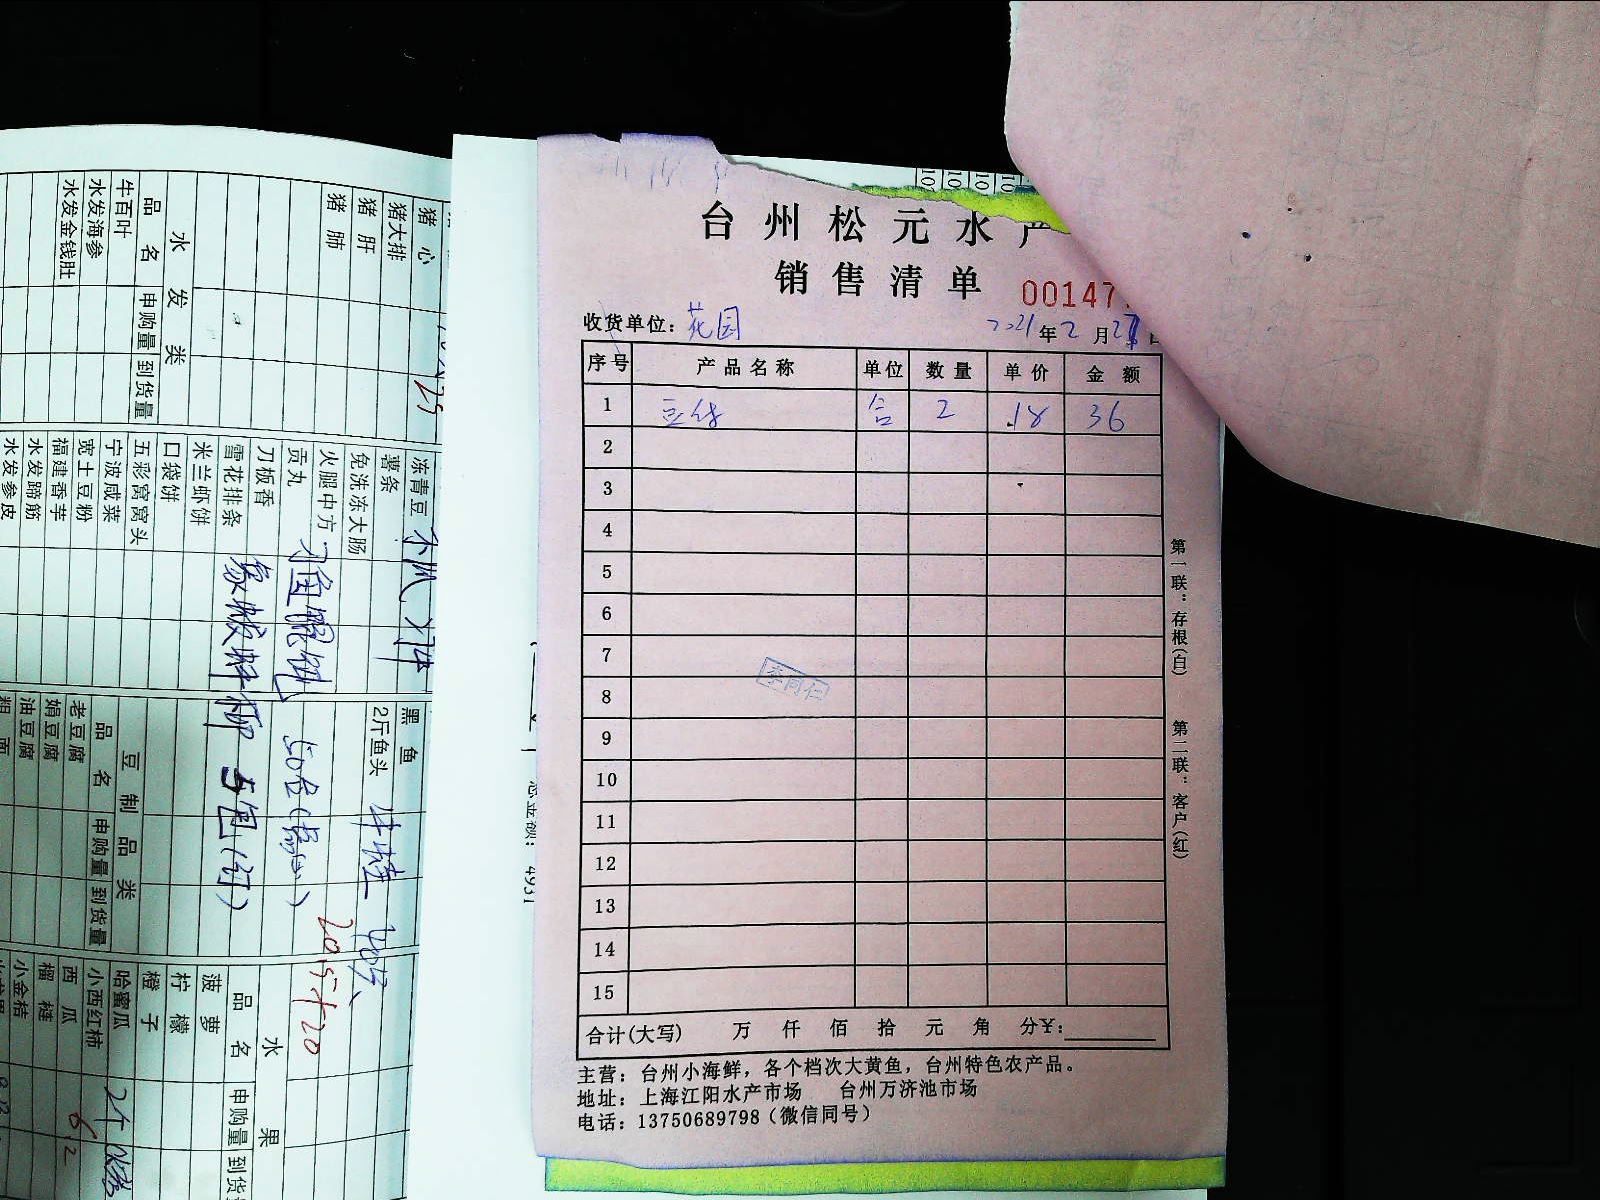 台州松元水产
销售清单
00147
收货单位：花园
2021年2月27日
序号 产品名称 单位 数量 单价 金额
1 豆结 合 2 18 36
2
3
4
5
6
7
8
9
10
11
12
13
14
15
李同仁
合计(大写) 万 仟 佰 拾 元 角 分¥：
主营：台州小海鲜，各个档次大黄鱼，台州特色农产品。
地址：上海江阳水产市场 台州万济池市场
电话：13750689798（微信同号）
第一联：存根(白)
第二联：客户(红)
总金额：4931
猪心
猪大排
猪肝
猪肺
水发类
品名 申购量 到货量
牛百叶
水发海参
水发金钱肚
冻青豆
薯条
免洗冻大肠
火腿中方
贡丸
刀板香
雪花排条
米兰虾饼
口袋饼
五彩窝窝头
宁波咸菜
宽土豆粉
福建香芋
水发蹄筋
水发参皮
黑鱼
2斤鱼头
20.5+20
豆制品类
品名 申购量 到货量
老豆腐
娟豆腐
油豆腐
粗面
水果
品名 申购量 到货
菠萝
柠檬
橙子
哈蜜瓜
小西红柿
西瓜 6.2
榴梿
小金桔